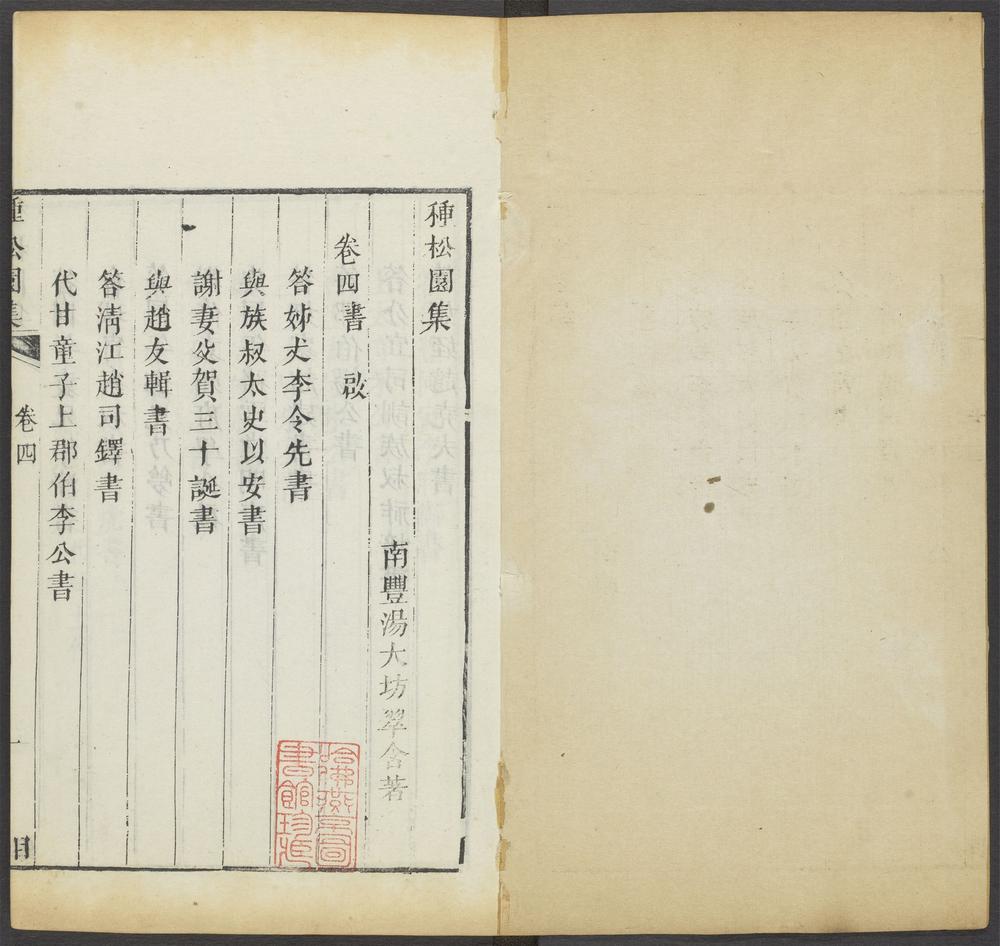 種松園集
南豐湯大坊翠含著
卷四書 啟
答姊丈李令先書
與族叔太史以安書
謝妻父賀三十誕書
與趙友輯書
答淸江趙司鐸書
代甘童子上郡伯李公書
種松園集 卷四 一 目
哈佛燕京圖書館珍藏